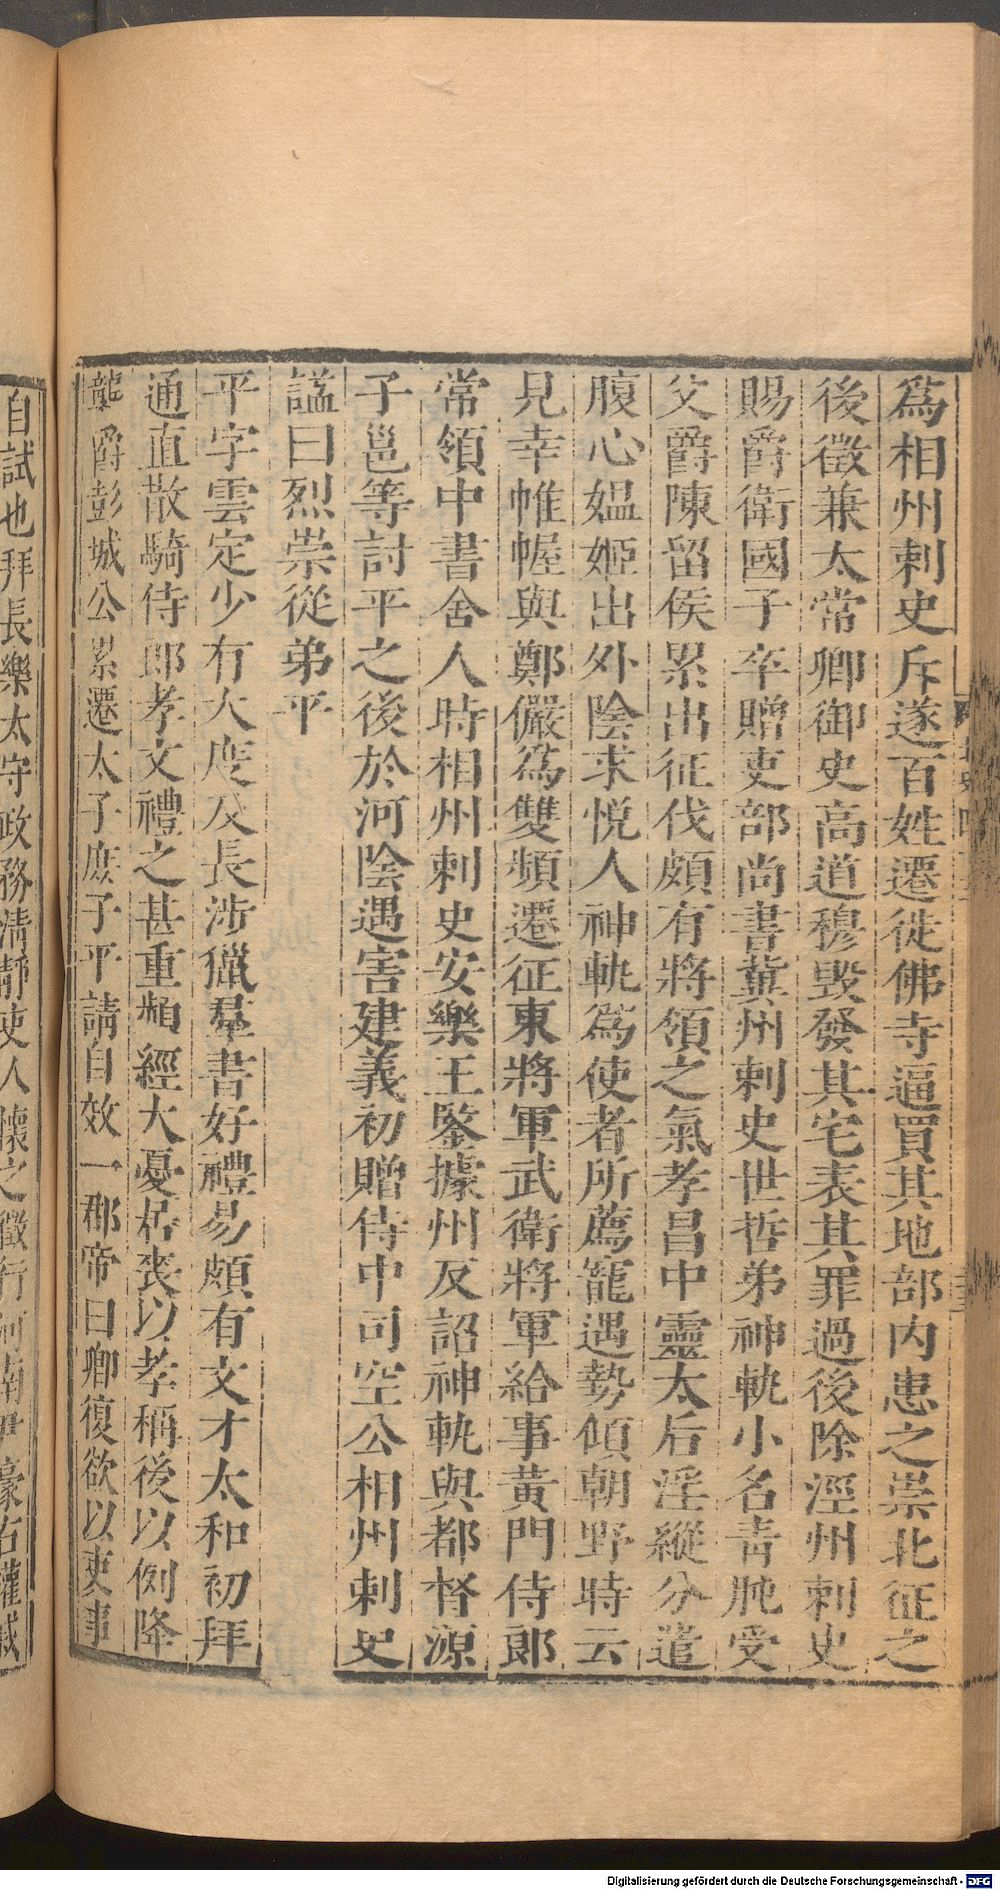 爲相州刺史斥逐百姓遷徙佛寺逼買其地部内患之崇北征之
後徵兼太常卿御史高道穆毀發其宅表其罪過後除涇州刺史
賜爵衛國子卒贈吏部尚書冀州刺史世哲弟神軌小名青肫受
父爵陳留侯累出征伐頗有將領之氣孝昌中靈太后淫縱分遣
腹心媼姬出外陰求悅人神軌爲使者所薦寵遇勢傾朝野時云
見幸帷幄與鄭儼爲雙頻遷征東將軍武衛將軍給事黄門侍郞
常領中書舍人時相州刺史安樂王鑒據州反詔神軌與都督源
子邕等討平之後於河陰遇害建義初贈侍中司空公相州刺史
謚曰烈崇從弟平
平字雲定少有大度及長涉獵羣書好禮易頗有文才太和初拜
通直散騎侍郎孝文禮之甚重頻經大憂居喪以孝稱後以例降
襲爵彭城公累遷太子庶子平請自效一郡帝曰卿復欲以吏事
自試也拜長樂太守政務清靜吏人懷之徵行河南尹豪右權戚
Digitalisierung gefördert durch die Deutsche Forschungsgemeinschaft - DFG